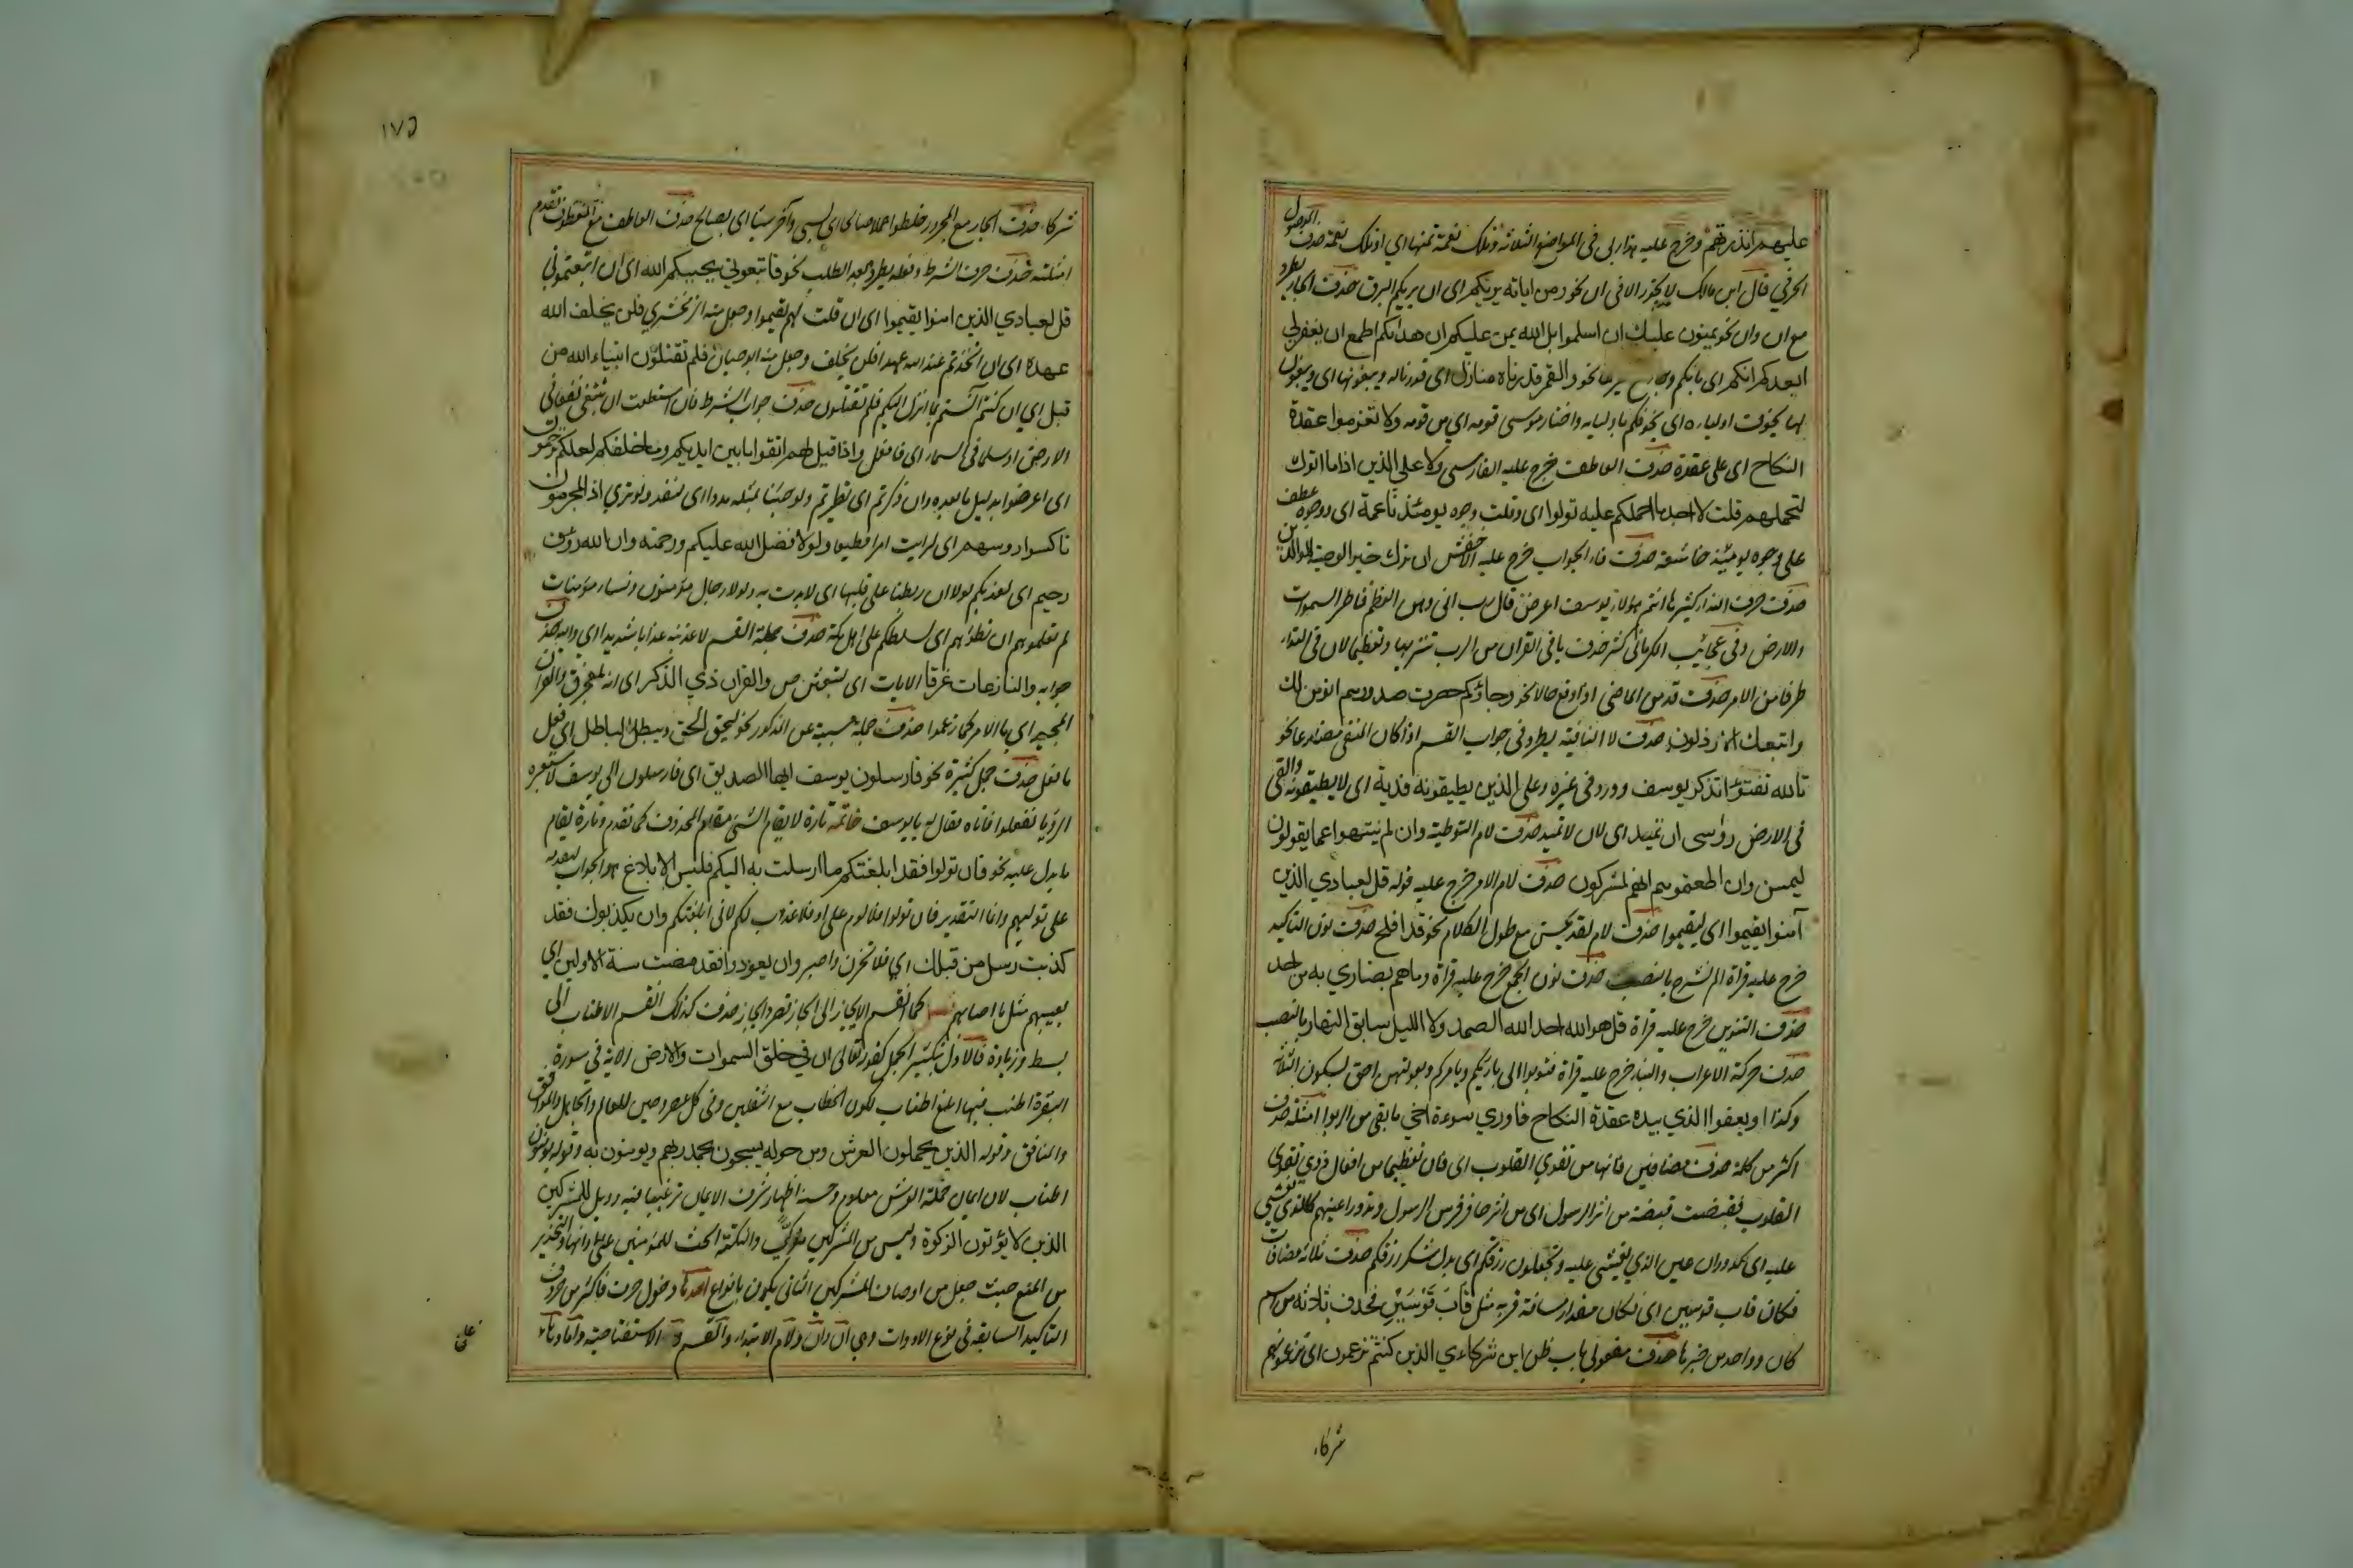 عليهم انذرتهم وخرج عليه هذا ربى فى المواضع الثلاثة وتلك نعمة تمنها اي او تلك نعمة حذف الموصول
الحرفي قال ابن مالك لا يجوز الا فى ان نحو ومن اياته يريكم اى ان يريكم البرق حذف الجار يطرد
مع ان وان نحو يمنون عليك ان اسلموا بل الله يمن عليكم ان هداكم اطمع ان يغفر لي
ايعدكم انكم اى بانكم وجاء مع غيرهما نحو والقمر قدرناه منازل اى قدرنا له ويبغونها اى ويبغون
لها يخوف اولياءه اى يخوفكم باوليايه واختار موسى قومه اي من قومه ولا تعزموا عقدة
النكاح اى على عقدة حذف العاطف خرج عليه الفارسى ولا على الذين اذا ما اتوك
لتحملهم قلت لا اجد ما احملكم عليه تولوا اى وقلت وجوه يومئذ ناعمة اى ووجوه عطف
على وجوه يومئذ خاشعة حذف فاء الجواب خرج عليه الاخفش ان ترك خير الوصية للوالدين
حذف حرف النداء كثير ها انتم هولاء يوسف اعرض قال رب انى وهن العظم فاطر السموات
والارض وفى عجائب الكرمانى كثر حذف يا فى القران من الرب تنزيها وتعظيما لان فى النداء
طرفا من الامر حذف قد من الماضى اذا وقع حالا نحو وجاؤكم حصرت صدورهم انؤمن لك
واتبعك الارذلون حذف لا النافية يطرد فى جواب القسم اذا كان المنفى مضارعا نحو
تالله تفتؤ تذكر يوسف وورد فى غيره وعلى الذين يطيقونه فدية اى لا يطيقونه والقى
فى الارض رواسى ان تميد اى لان لا تميد حذف لام التوطية وان لم ينتهوا عما يقولون
ليمسن وان اطعتموهم انكم لمشركون حذف لام الامر خرج عليه قوله قل لعبادي الذين
آمنوا يقيموا اى ليقيموا حذف لام لقد يحسن مع طول الكلام نحو قد افلح حذف نون التاكيد
خرج عليه قراة الم نشرح بالنصب حذف نون الجمع خرج عليه قراة وما هم بضاري به من احد
حذف التنوين خرج عليه قراة قل هو الله احد الله الصمد ولا الليل سابق النهار بالنصب
حذف حركة الاعراب والبناء خرج عليه قراة فتوبوا الى بارئكم ويامركم وبعولتهن احق بسكون الثلاثة
وكذا او يعفوا الذي بيده عقدة النكاح فاوري سوءة اخي ما بقى من الربوا امثلة حذف
اكثر من كلمة حذف مضافين فانها من تقوي القلوب اى فان تعظيمها من افعال ذوي تقوى
القلوب فقبضت قبضة من اثر الرسول اى من اثر حافر فرس الرسول وتدور اعينهم كالذي يغشى
عليه اى كدوران عين الذي يغشى عليه وتجعلون رزقكم اى بدل شكر رزقكم حذف ثلاثة مضافات
فكان قاب قوسين اى فكان مقدار مسافة قربه مثل قاب قوسين فحذف ثلاثة من اسم
كان وواحد من خبرها حذف مفعولى باب ظن اين شركاءي الذين كنتم تزعمون اى تزعمونهم
شركاء
١٧٥
شركاء حذف الجار مع المجرور خلطوا عملا صالحا اى بسيئ وآخر سيئا اى بصالح حذف العاطف مع المعطوف تقدم
امثلته حذف حرف الشرط وفعله يطرد بعد الطلب نحو فاتبعوني يحببكم الله اى ان اتبعتموني
قل لعبادي الذين امنوا يقيموا اى ان قلت لهم يقيموا وجعل منه الزمخشري فلن يخلف الله
عهده اى ان اتخذتم عند الله عهدا فلن يخلف وجعل منه ابو حيان فلم تقتلون انبياء الله من
قبل اي ان كنتم آمنتم بما انزل اليكم فلم تقتلون حذف جواب الشرط فان استطعت ان تبتغى نفقا فى
الارض او سلما فى السماء اى فافعل واذا قيل لهم اتقوا ما بين ايديكم وما خلفكم لعلكم ترحمون
اى اعرضوا بدليل ما بعده وان ذكرتم اى تطيرتم ولو جئنا بمثله مددا اى لنفد ولو تري اذ المجرمون
ناكسوا روسهم اى لرايت امرا فظيعا ولولا فضل الله عليكم ورحمته وان الله رؤف
رحيم اى لعذبكم لولا ان ربطنا على قلبها اى لابدت به ولولا رجال مؤمنون ونساء مؤمنات
لم تعلموهم ان تطؤهم اى لسلطكم على اهل مكة حذف جملة القسم لاعذبنه عذابا شديدا اى والله حذف
جوابه والنازعات غرقا الايات اى لتبعثن ص والقران ذي الذكر اى انه لمعجز ق والقران
المجيد اى ما الامر كما زعموا حذف جملة مسببة عن المذكور نحو ليحق الحق ويبطل الباطل اى فعل
ما فعل حذف جمل كثيرة نحو فارسلون يوسف ايها الصديق اى فارسلون الى يوسف لاستعبره
الرؤيا ففعلوا فاتاه فقال له يا يوسف خاتمة تارة لا يقام الشئ مقام المحذوف كما تقدم وتارة يقام
ما يدل عليه نحو فان تولوا فقد ابلغتكم ما ارسلت به اليكم فليس الابلاغ هو الجواب لتقدمه
على توليهم وانما التقدير فان تولوا فلا لوم على او فلا عذر لكم لانى ابلغتكم وان يكذبوك فقد
كذبت رسل من قبلك اي فلا تحزن واصبر وان يعودوا فقد مضت سنة الاولين اي
يصيبهم مثل ما اصابهم فصل كما انقسم الايجاز الى ايجاز قصر وايجاز حذف كذلك انقسم الاطناب الى
بسط وزيادة فالاول بتكثير الجمل كقوله تعالى ان في خلق السموات والارض الاية في سورة
البقرة اطنب فيها ابلغ اطناب لكون الخطاب مع الثقلين وفى كل عصر وحين للعالم والجاهل والموافق
والمنافق وقوله الذين يحملون العرش ومن حوله يسبحون بحمد ربهم ويومنون به وقوله يومنون
اطناب لان ايمان حملة العرش معلوم وحسنه اظهار شرف الايمان ترغيبا فيه وويل للمشركين
الذين لا يؤتون الزكوة وليس من المشركين مزكي والنكتة الحث للمؤمنين على ادائها والتحذير
من المنع حيث جعل من اوصاف المشركين الثانى يكون بانواع احدها دخول حرف فاكثر من حروف
التاكيد السابقة فى نوع الادوات وهي ان وان ولام الابتداء والقسم والا الاستفتاحية واما وهاء